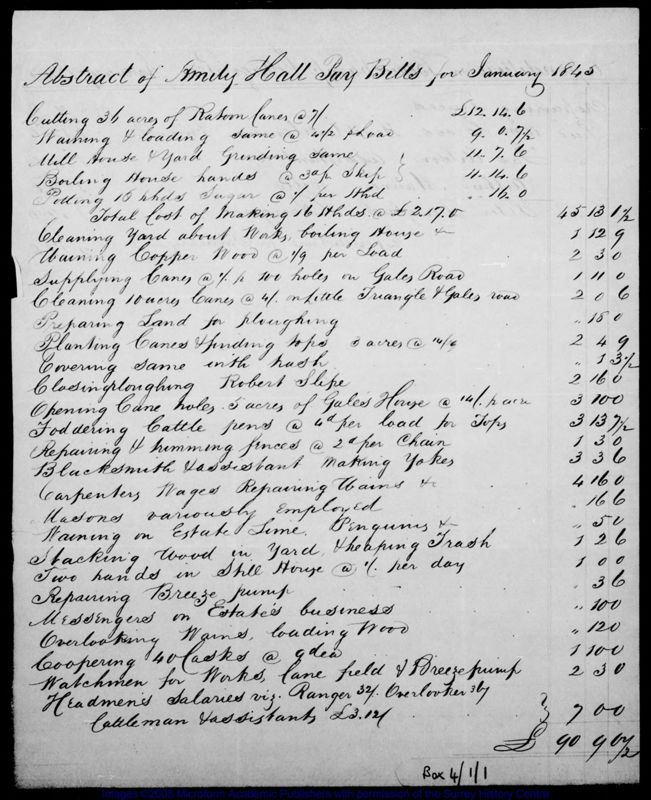 Abstract of Amity Hall Pay Bills for January 1845
Cutting 36 acres of Ratoon Canes @ 7/ £12. 14. 6
Waining & loading same @ 4/2 load 9. 0. 7½
Mill House & Yard Grinding same 11. 7. 6
Boiling House hands @ Skip 11. 14. 6
Potting 16 hhds Sugar @ 1/ per Hhd " 16. 0
Total Cost of Making 16 Hhds. @ £2.17.0 45 13 1½
Cleaning Yard about Works, boiling House & 1 12 9
Waining Copper Wood @ 1/9 per Load 2 3 0
Supplying Canes @ 1/. p 100 holes on Gales Road 1 11 0
Cleaning 10 acres Canes @ 4/. on Little Triangle & Gales road 2 0 6
Preparing Land for ploughing " 15 0
Planting Canes & finding tops 3 acres @ 2 4 9
Covering same with trash " 1 3½
Closing ploughing Robert Slipe 2 16 0
Opening Cane holes 5 acres of Gale's House @ 14/. p acre 3 10 0
Foddering Cattle pens @ 4d per load for Tops 3 13 7½
Repairing & trimming fences @ 2d per Chain 1 3 0
Blacksmith & assistant making Yokes 3 3 6
Carpenters Wages Repairing Wains & 4 16 0
Masons variously Employed " 16 6
Waining on Estate Lime, Penguins & " 5 0
Stacking Wood in Yard, & heaping Trash 1 2 6
Two hands in Still House @ 1/. per day 1 0 0
Repairing Breeze pump " 3 6
Messengers on Estate's business " 10 0
Overlooking Wains, loading Wood " 12 0
Coopering 40 Casks @ 9d ea 1 10 0
Watchmen for Works, Cane field & Breeze pump 2 3 0
Headmen's Salaries viz. Ranger 32/. Overlooker 36/
Cattleman & assistants £3.12/ 7 0 0
£ 90 9 0½
Box 4/1/1
Images ©2005 Microform Academic Publishers with permission of the Surrey History Centre